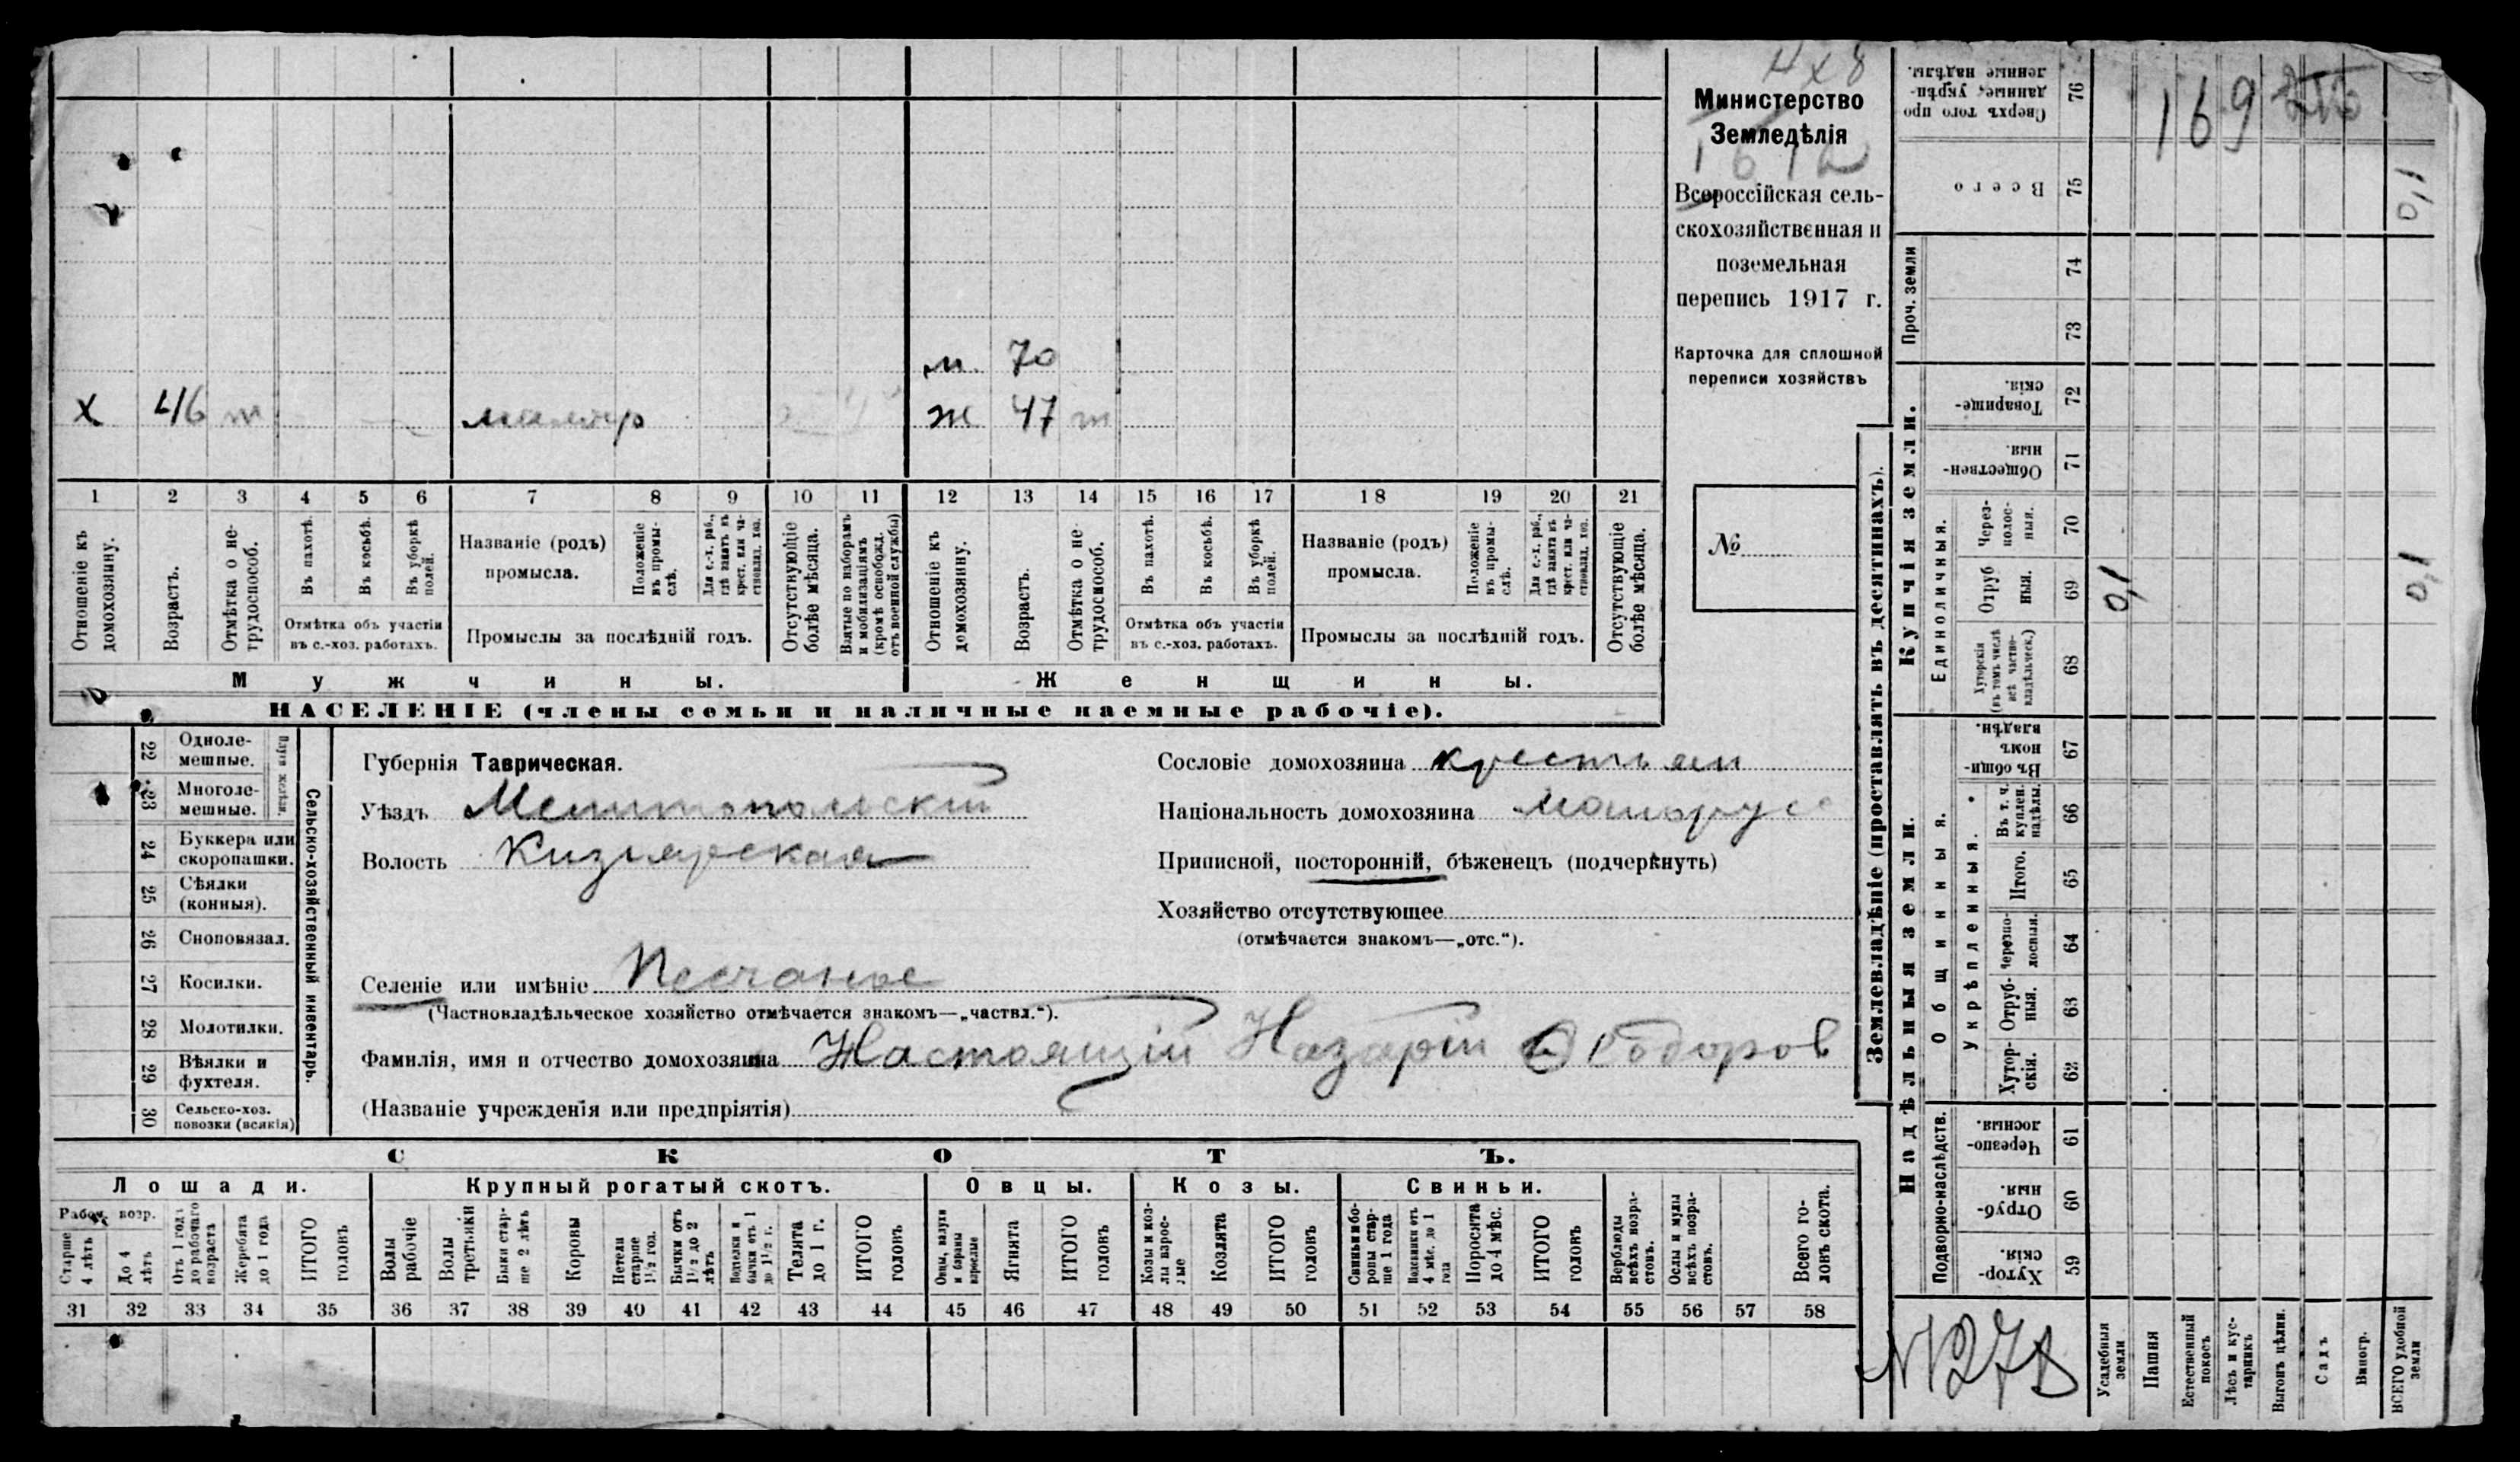 4x8
Министерство
Земледѣлія
Всероссійская сель-
скохозяйственная и
поземельная
перепись 1917 г.
Карточка для сплошной
переписи хозяйствъ
№
м. 70
х 46 т маляръ ж 47 т
1 2 3 4 5 6 7 8 9 10 11 12 13 14 15 16 17 18 19 20 21
Отношеніе къ домохозяину.
Возрастъ.
Отмѣтка о не-трудоспособ.
Въ пахотѣ.
Въ косьбѣ.
Въ уборкѣ полей.
Отмѣтка объ участіи
въ с.-хоз. работахъ.
Названіе (родъ)
промысла.
Положеніе въ промы-слѣ.
Для с.-х. раб., гдѣ занятъ въ крест. или ча-стновлад. хоз.
Промыслы за послѣдній годъ.
Отсутствующіе болѣе мѣсяца.
Взятые по наборамъ и мобилизаціямъ (кромѣ освобожд. отъ военной службы)
Отношеніе къ домохозяину.
Возрастъ.
Отмѣтка о не-трудоспособ.
Въ пахотѣ.
Въ косьбѣ.
Въ уборкѣ полей.
Отмѣтка объ участіи
въ с.-хоз. работахъ.
Названіе (родъ)
промысла.
Положеніе въ промы-слѣ.
Для с.-х. раб., гдѣ занята въ крест. или ча-стновлад. хоз.
Промыслы за послѣдній годъ.
Отсутствующіе болѣе мѣсяца.
Мужчины. Женщины.
НАСЕЛЕНІЕ (члены семьи и наличные наемные рабочіе).
22 Одноле-мешные.
23 Многоле-мешные.
Плуги желѣзн.
24 Буккера или скоропашки.
25 Сѣялки (конныя).
26 Сноповязал.
27 Косилки.
28 Молотилки.
29 Вѣялки и фухтеля.
30 Сельско-хоз. повозки (всякія)
Сельско-хозяйственный инвентарь.
Губернія Таврическая.
Уѣздъ Мелитопольскій
Волость Кизіярская
Сословіе домохозяина крестьян
Національность домохозяина малорус
Приписной, посторонній, бѣженецъ (подчеркнуть)
Хозяйство отсутствующее
(отмѣчается знакомъ—„отс.“).
Селеніе или имѣніе Песчаное
(Частновладѣльческое хозяйство отмѣчается знакомъ—„частвл.“).
Фамилія, имя и отчество домохозяина Настоящій Назарій Ѳеодоров
(Названіе учрежденія или предпріятія)
СКОТЪ.
Лошади. Крупный рогатый скотъ. Овцы. Козы. Свиньи.
Рабоч. возр.
Старше 4 лѣтъ
До 4 лѣтъ
Отъ 1 года до рабочаго возраста
Жеребята до 1 года
ИТОГО головъ
Волы рабочіе
Волы третьяки
Быки стар-ше 2 лѣтъ
Коровы
Нетели старше 1½ год.
Бычки отъ 1½ до 2 лѣтъ
Подтелки и бычки отъ 1 до 1½ г.
Телята до 1 г.
ИТОГО головъ
Овцы, валухи и бараны взрослые
Ягнята
ИТОГО головъ
Козы и коз-лы взрос-лые
Козлята
ИТОГО головъ
Свиньи и бо-ровы стар-ше 1 года
Подсвинки отъ 4 мѣс. до 1 года
Поросята до 4 мѣс.
ИТОГО головъ
Верблюды всѣхъ возра-стовъ.
Ослы и мулы всѣхъ возра-стовъ.
Всего го-ловъ скота.
31 32 33 34 35 36 37 38 39 40 41 42 43 44 45 46 47 48 49 50 51 52 53 54 55 56 57 58
Землевладѣніе (проставлять въ десятинахъ).
Надѣльныя земли. Купчія земли. Проч. земли
Подворно-наслѣдств.
Общинныя.
Укрѣпленныя.
Единоличныя.
76 Сверхъ того про-данные, укрѣп-ленные надѣлы.
75 Всего
74
73
72 Товарище-скія.
71 Обществен-ныя.
70 Через-полос-ныя.
69 Отруб-ныя.
68 Хуторскія (въ томъ числѣ всѣ частно-владѣльческ.)
67 Въ общи-номъ владѣн.
66 Въ т. ч. куплен. надѣлы.
65 Итого.
64 Черезпо-лосныя.
63 Отруб-ныя.
62 Хутор-скія.
61 Черезпо-лосныя.
60 Отруб-ныя.
59 Хутор-скія.
169
0,1
0,1
0,1
№278
Усадебныя земли
Пашня
Естественный покосъ
Лѣсъ и кус-тарникъ
Выгонъ цѣлин.
Садъ
Виногр.
ВСЕГО удобной земли